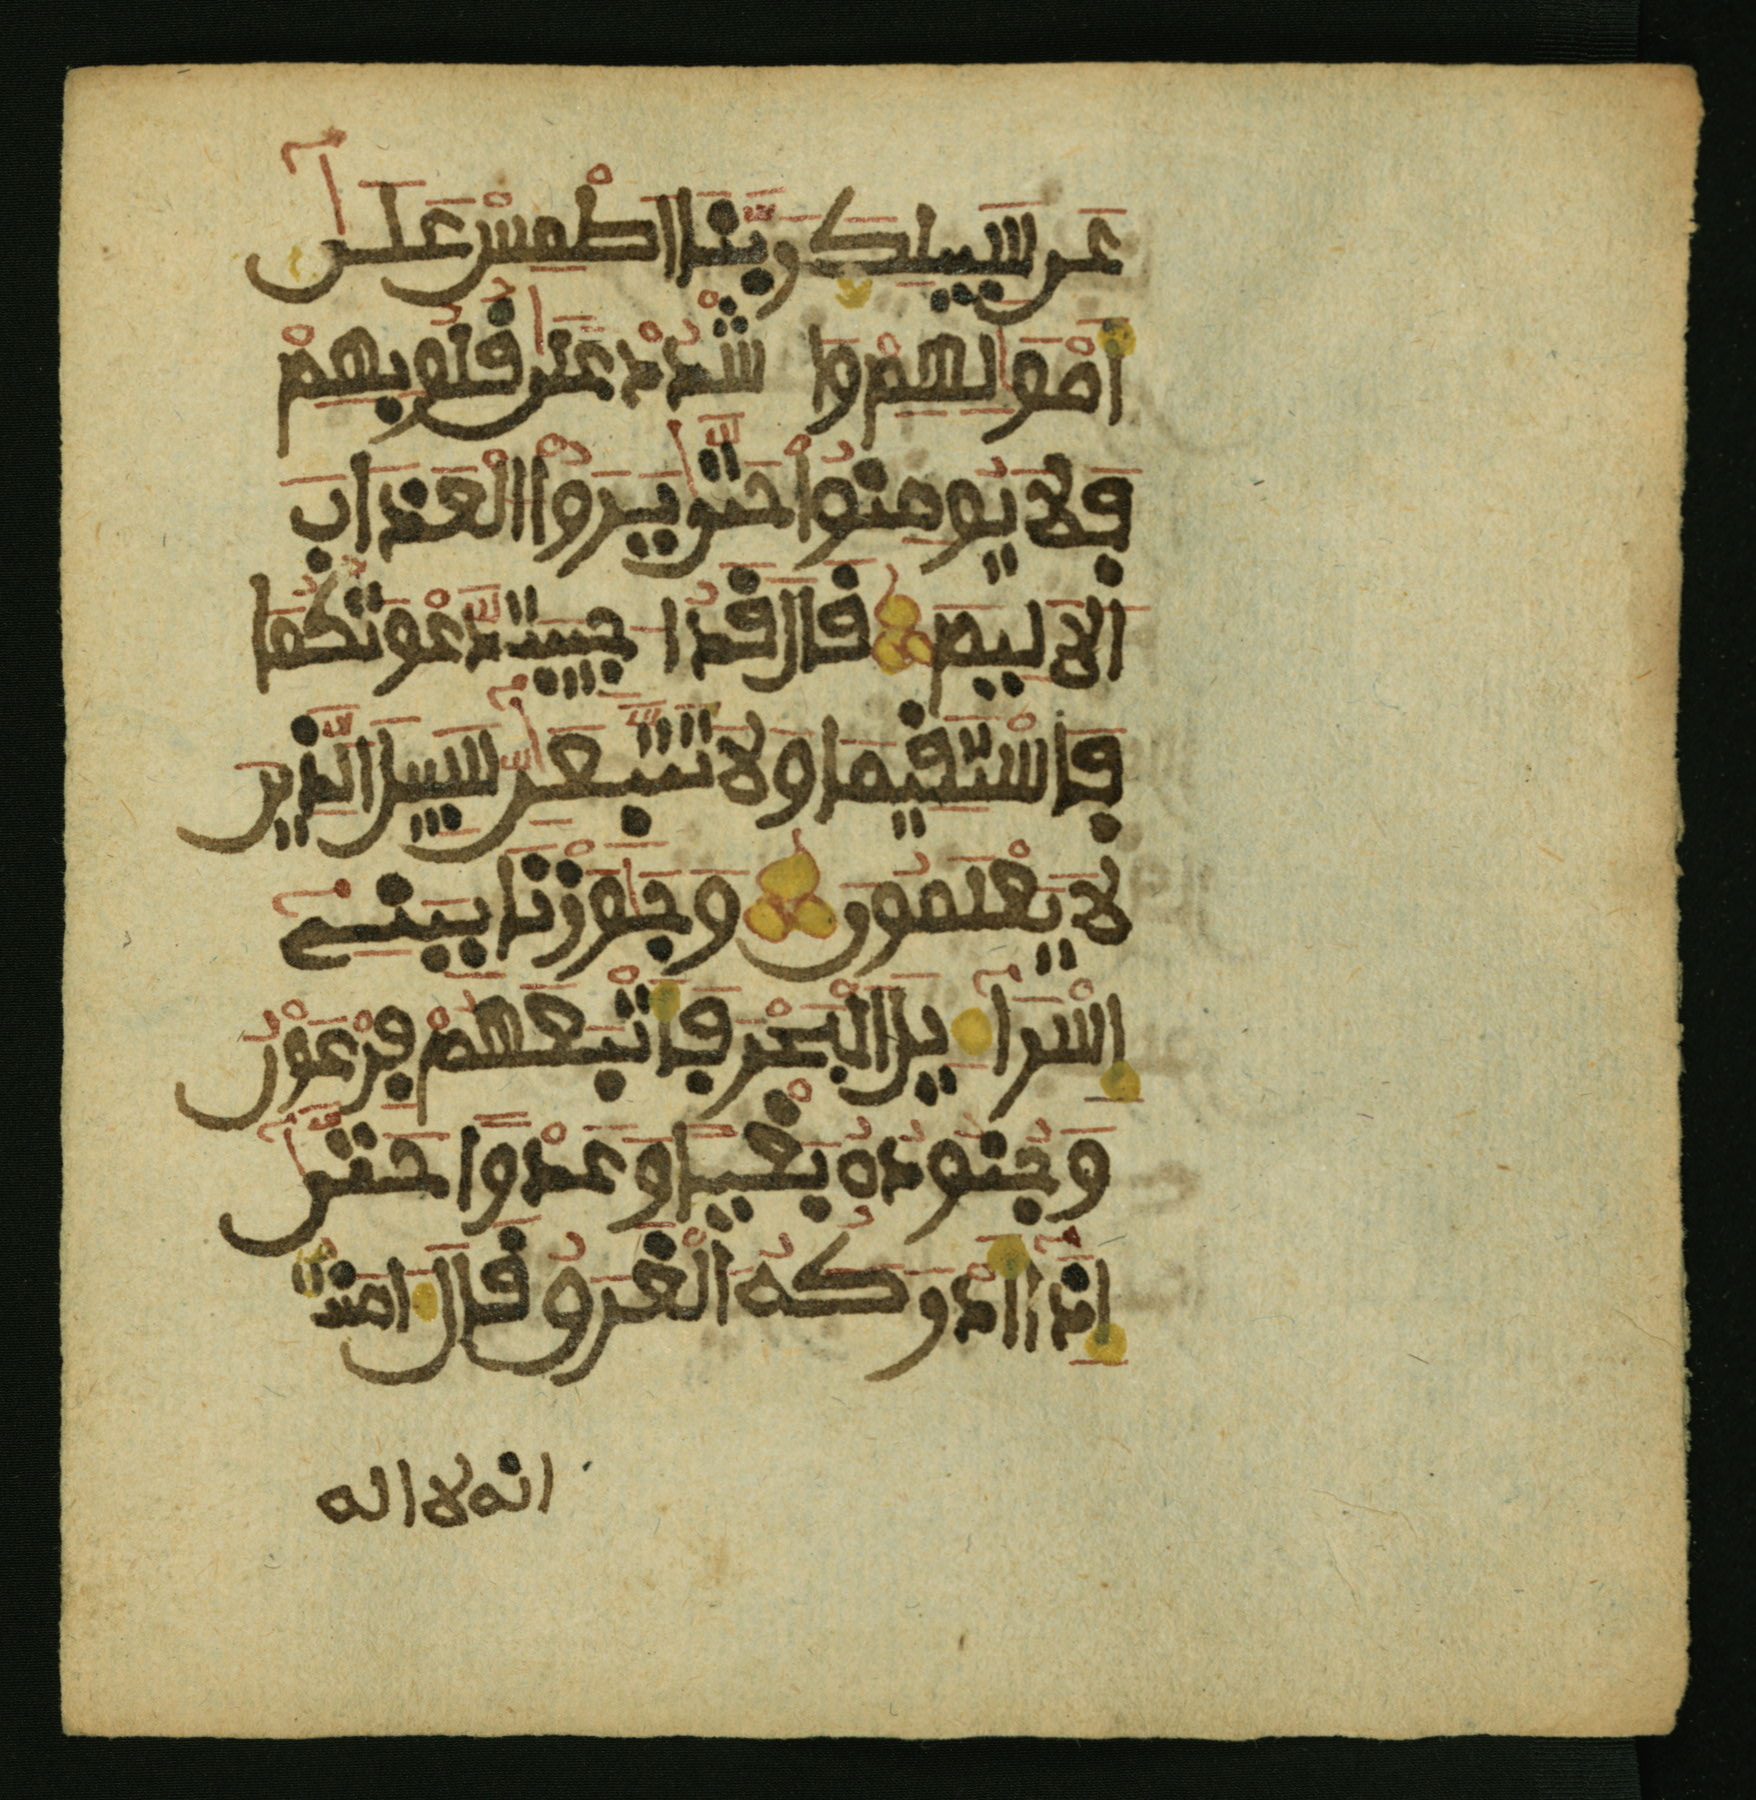 عَن سَبِيلِكَ رَبَّنَا اَطْمِسْ عَلَىٰٓ
أَمْوَٰلِهِمْ وَا شْدُدْ عَلَىٰ قُلُوبِهِمْ
فَلَا يُومِنُواْ حَتَّىٰ يَرَوُاْ اَلْعَذَابَ
اَلَالِيمَ قَالَ قَدُ ا جِيبَت دَّعْوَتُكُمَا
فَاسْتَقِيمَا وَلَا تَتَّبِعَٰٓنِّ سَبِيلَ اَلذِينَ
لَا يَعْلَمُونَ وَجَٰوَزْنَا بِبَنِےٓ
إِسْرَآ ءِيلَ اَلْبَحْرَ فَأَتْبَعَهُمْ فِرْعَوْنُ
وَجُنُودُهُ بَغْياً وَعَدْواً حَتَّىٰٓ
إِذَآ أَدْرَكَهُ اَلْغَرَقُ قَالَ ءَامَنتُ
انه لا اله